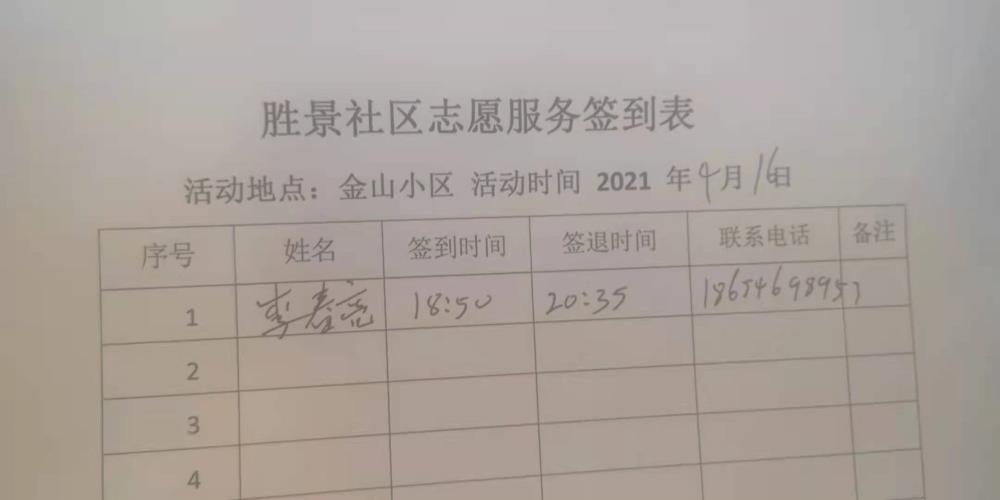 胜景社区志愿服务签到表
活动地点：金山小区 活动时间 2021 年 9月 16日
序号 姓名 签到时间 签退时间 联系电话 备注
1 李春亮 18:50 20:35 18654698957
2
3
4